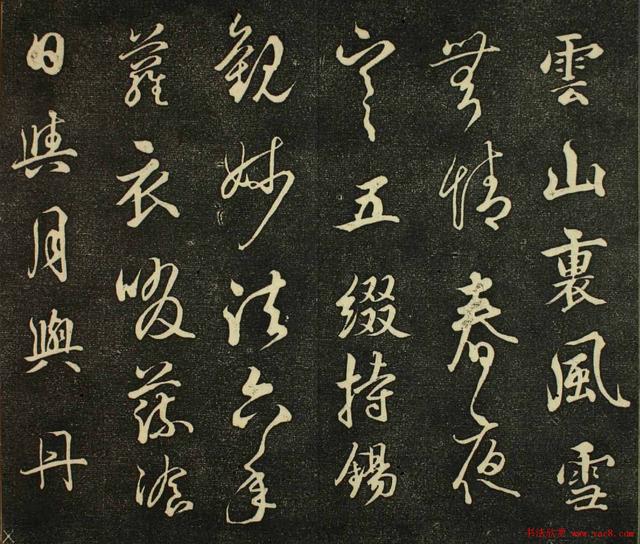 雲山裏風雪
無情春夜
寒五綴持錫
觀妙法六年
蘿衣啜蔬飡
日與月與丹
书法欣赏 www.yac8.com